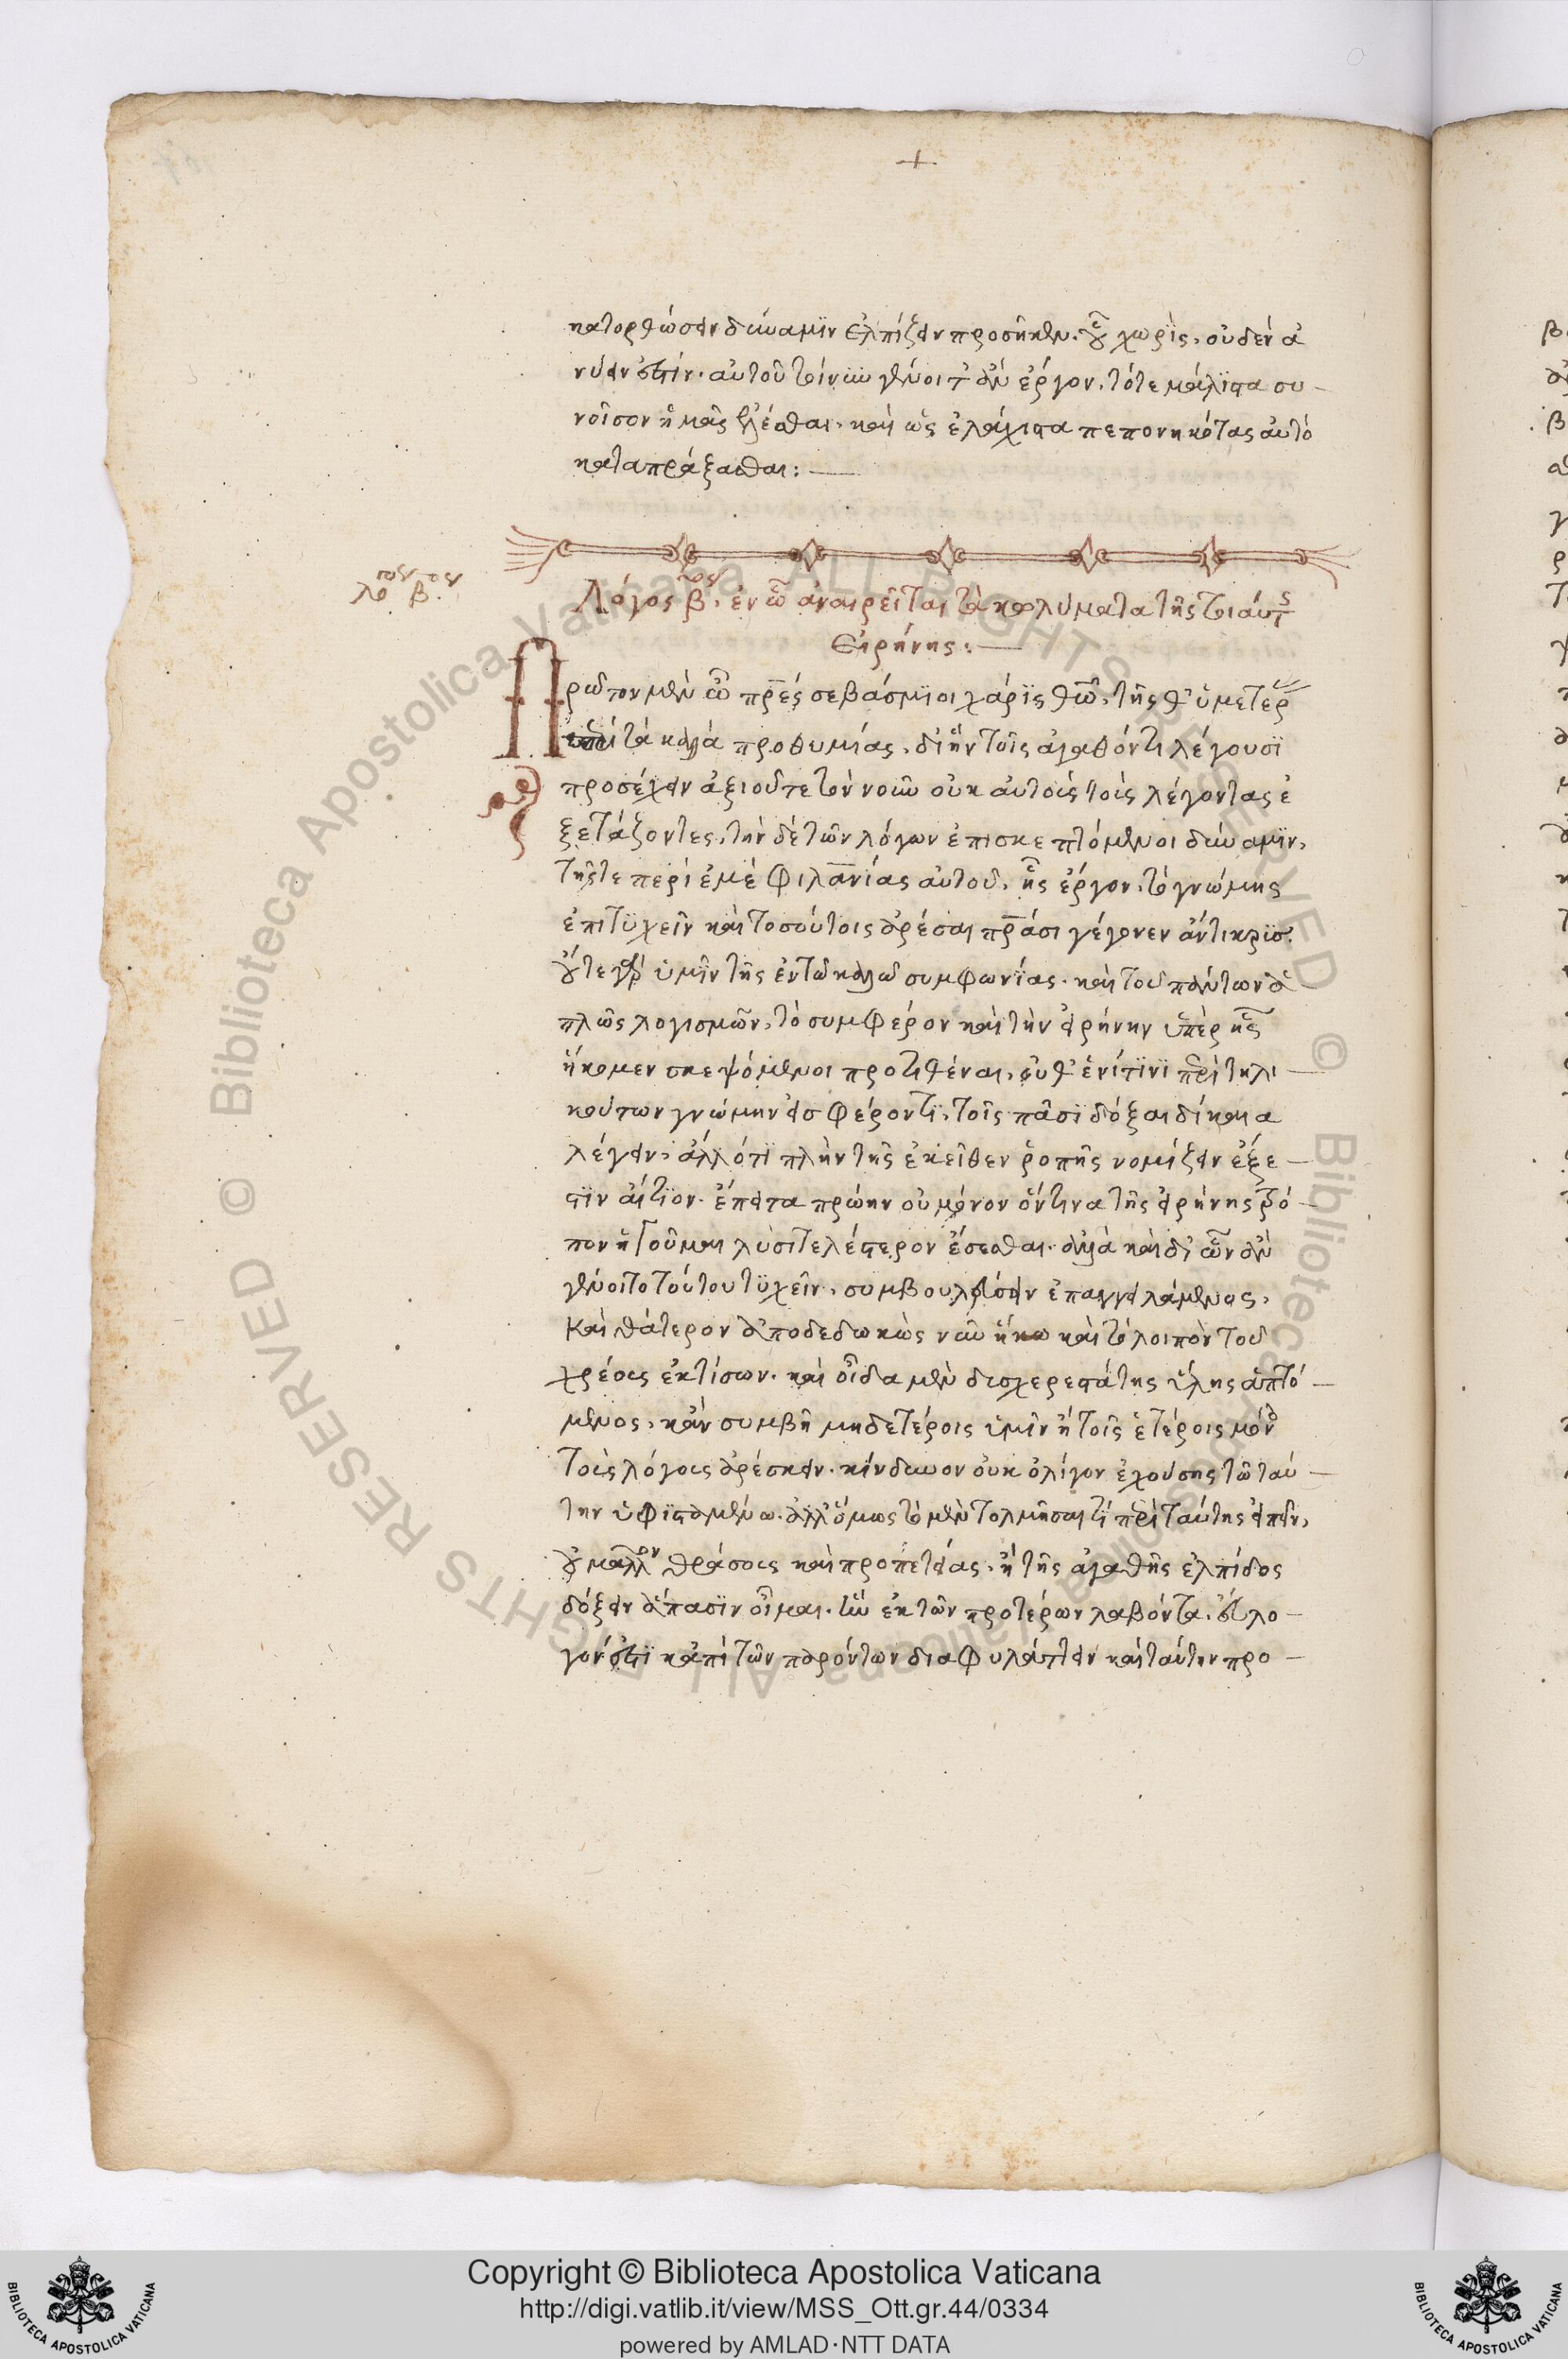 +
κατορθώσειν δύναμϊν ἐλπίζειν προσῆκεν. οὗ χωρὶς, οὐδὲν ἀ
νύειν ἐστίν. αὐτοῦ τοίνυν γένοιτ' ἂν ἔργον, τότε μάλϊστα συ-
νοῖσον ἡμᾶς ἑλέσθαι, καὶ ὡς ἐλάχιστα πεπονηκότας αὐτὸ
καταπράξασθαι:—
λόγος β'ος
Λόγος β'ος, ἐν ᾧ ἀναιρεῖται τὰ κωλύματα τῆς τοιαύτης
Εἰρήνης:—
Πρῶτον μὲν ὦ πρ̅ες σεβάσμϊοι χάρϊς θῶ, τῆς θ' ὑμετέρας
ἐπὶ τὰ καλὰ προθυμίας, δι' ἣν τοῖς ἀγαθόν τι λέγουσϊ
προσέχειν ἀξιοῦτε τὸν νοῦν οὐκ αὐτοὺς τοὺς λέγοντας ἐ
ξετάζοντες, τὴν δὲ τῶν λόγων ἐπισκεπτόμενοι δύναμϊν,
τῆς τε περὶ ἐμὲ φιλαν̅ίας αὐτοῦ, ἧς ἔργον, τὸ γνώμης
ἐπιτϋχεῖν καὶ τοσούτοις ἀρέσαι πρ̅άσι γέγονεν ἄντικρϋσ.
οὔτε γὰρ ὑμῖν τῆς ἐν τῷ καλῷ συμφωνίας, καὶ τοῦ πάντων ἁ
πλῶς λογισμῶν, τὸ συμφέρον καὶ τὴν εἰρήνην ὑπὲρ ἧς
ἥκομεν σκεψόμενοι προτιθέναι, οὔθ' ἑνί τϊνϊ περὶ τηλι-
κούτων γνώμην εἰσφέροντϊ, τοῖς πᾶσϊ δόξαι δίκαια
λέγειν, ἄλλό τϊ πλὴν τῆς ἐκεῖθεν ῥοπῆς νομίζειν ἔξε-
στϊν αἴτϊον. ἔπειτα πρώην οὐ μόνον ὅντινα τῆς εἰρήνης τρό-
πον ἡγοῦμαι λϋσιτελέστερον ἔσεσθαι. ἀλλὰ καὶ δι' ὧν ἂν
γένοιτο τούτου τϋχεῖν, συμβουλεύσειν ἐπαγγειλάμενος,
καὶ θάτερον ἀποδεδωκὼς νῦν ἥκω καὶ τὸ λοιπὸν τοῦ
χρέους ἐκτίσων. καὶ οἶδα μὲν δυσχερεστάτης ὕλης ἁπτό-
μενος, κἂν συμβῇ μηδετέροις ὑμῖν ἢ τοῖς ἑτέροις μόνον
τοὺς λόγους ἀρέσκειν. κίνδυνον οὐκ ὀλίγον ἐχούσης τῷ ταύ-
την ὑφϊσταμένω. ἀλλ' ὅμως τὸ μὲν τολμῆσαί τϊ περὶ ταύτης εἰπεῖν,
οὐ μᾶλλον θράσους καὶ προπετείας, ἢ τῆς ἀγαθῆς ἐλπίδος
δόξειν ἅπασϊν οἶμαι. ἣν ἐκ τῶν προτέρων λαβόντα, εὔλο-
γόν ἐστϊ κἀπὶ τῶν παρόντων διαφυλάττειν καὶ ταύτην προ-
Copyright © Biblioteca Apostolica Vaticana
http://digi.vatlib.it/view/MSS_Ott.gr.44/0334
powered by AMLAD·NTT DATA